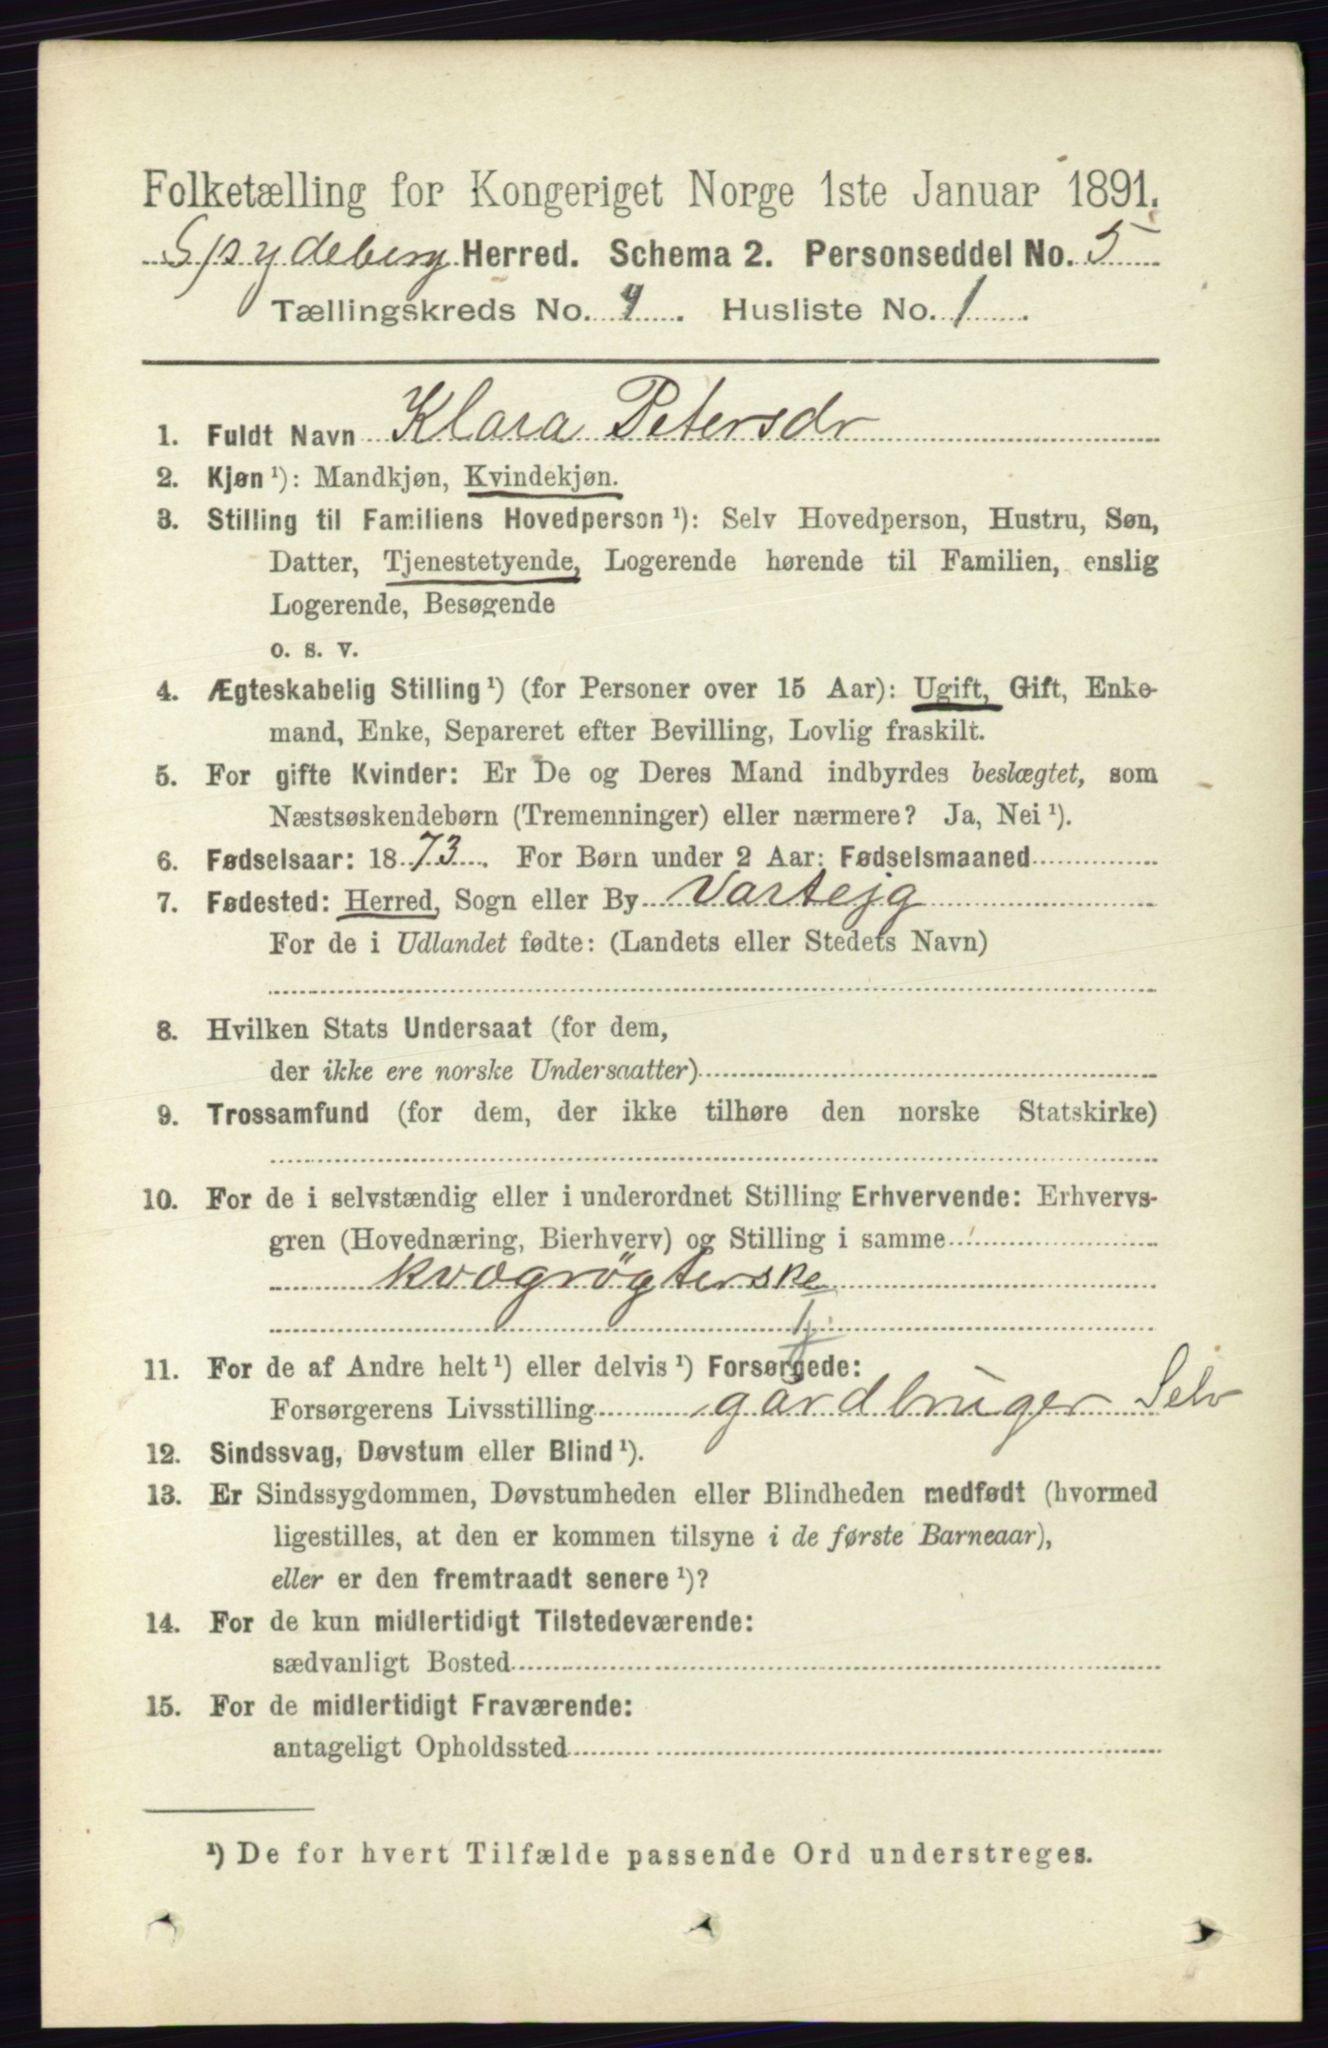 Folketælling for Kongeriget Norge 1ste Januar 1891.
Spydeberg Herred. Schema 2. Personseddel No. 5
Tællingskreds No. 4. Husliste No. 1.
1. Fuldt Navn Klara Petersdr
2. Kjøn ¹): Mandkjøn, Kvindekjøn.
3. Stilling til Familiens Hovedperson ¹): Selv Hovedperson, Hustru, Søn,
Datter, Tjenestetyende, Logerende hørende til Familien, enslig
Logerende, Besøgende
o. s. v.
4. Ægteskabelig Stilling ¹) (for Personer over 15 Aar): Ugift, Gift, Enke-
mand, Enke, Separeret efter Bevilling, Lovlig fraskilt.
5. For gifte Kvinder: Er De og Deres Mand indbyrdes beslægtet, som
Næstsøskendebørn (Tremenninger) eller nærmere? Ja, Nei ¹).
6. Fødselsaar: 1873. For Børn under 2 Aar: Fødselsmaaned
7. Fødested: Herred, Sogn eller By Vartejg
For de i Udlandet fødte: (Landets eller Stedets Navn)
8. Hvilken Stats Undersaat (for dem,
der ikke ere norske Undersaatter)
9. Trossamfund (for dem, der ikke tilhøre den norske Statskirke)
10. For de i selvstændig eller i underordnet Stilling Erhvervende: Erhvervs-
gren (Hovednæring, Bierhverv) og Stilling i samme
kvægrøgterske
11. For de af Andre helt ¹) eller delvis ¹) Forsørgede:
Forsørgerens Livsstilling gårdbruger Selv
12. Sindssvag, Døvstum eller Blind ¹).
13. Er Sindssygdommen, Døvstumheden eller Blindheden medfødt (hvormed
ligestilles, at den er kommen tilsyne i de første Barneaar),
eller er den fremtraadt senere ¹)?
14. For de kun midlertidigt Tilstedeværende:
sædvanligt Bosted
15. For de midlertidigt Fraværende:
antageligt Opholdssted
¹) De for hvert Tilfælde passende Ord understreges.